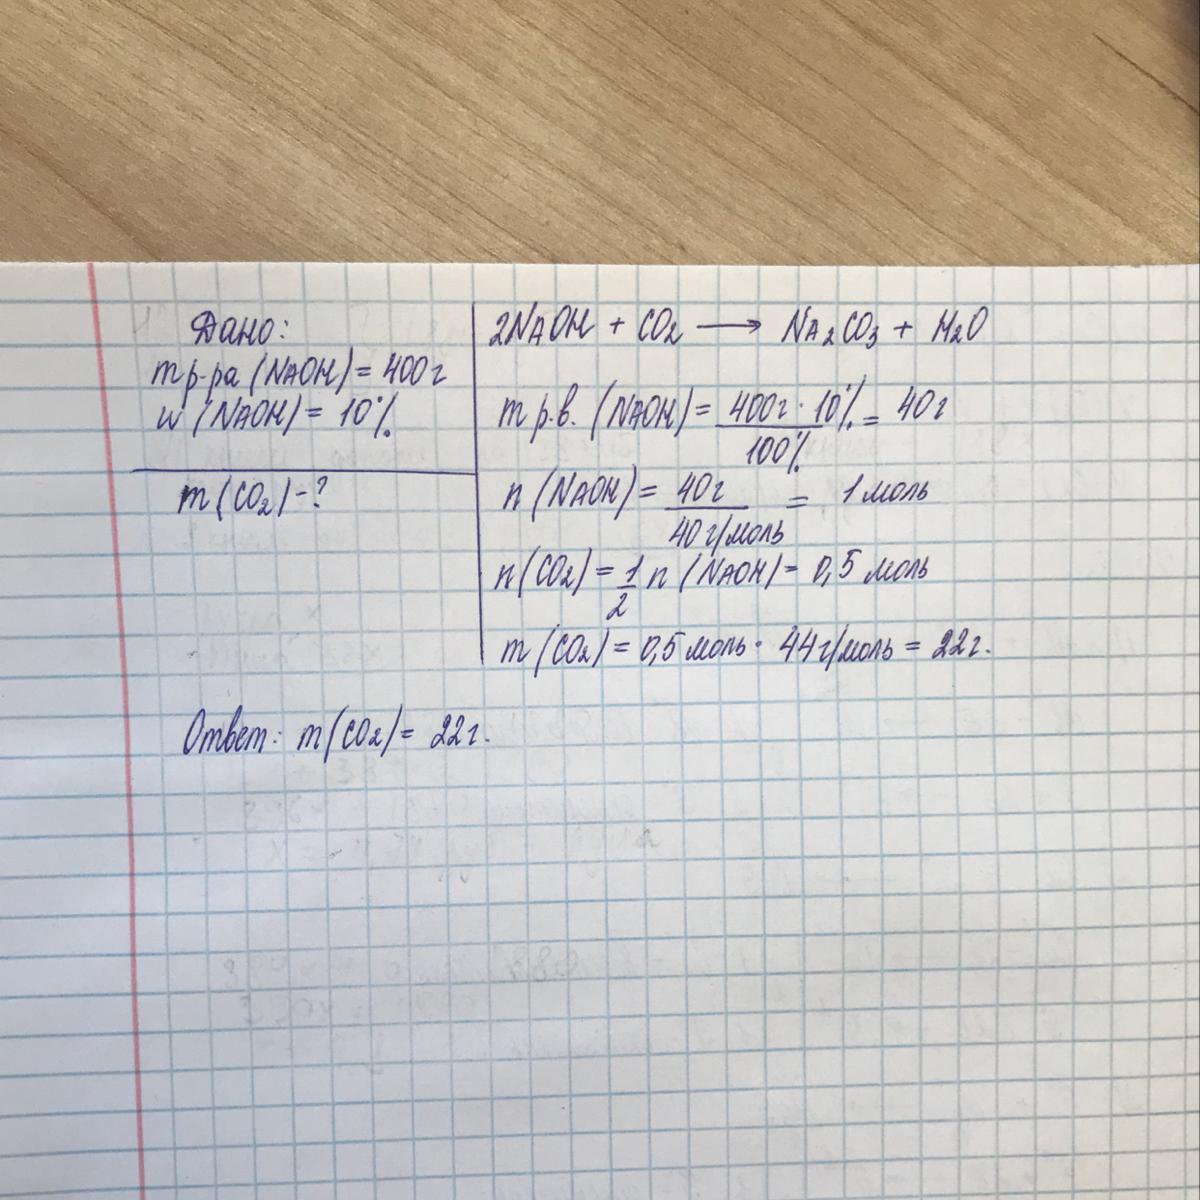 Дано:
m р-ра (NaOH) = 400г
w (NaOH) = 10%
m (CO₂) - ?
2NaOH + CO₂ → Na₂CO₃ + H₂O
m р.в. (NaOH) = 400г · 10% / 100% = 40г
n (NaOH) = 40г / 40г/моль = 1 моль
n (CO₂) = 1/2 n (NaOH) = 0,5 моль
m (CO₂) = 0,5 моль · 44г/моль = 22г.
Ответ: m (CO₂) = 22г.